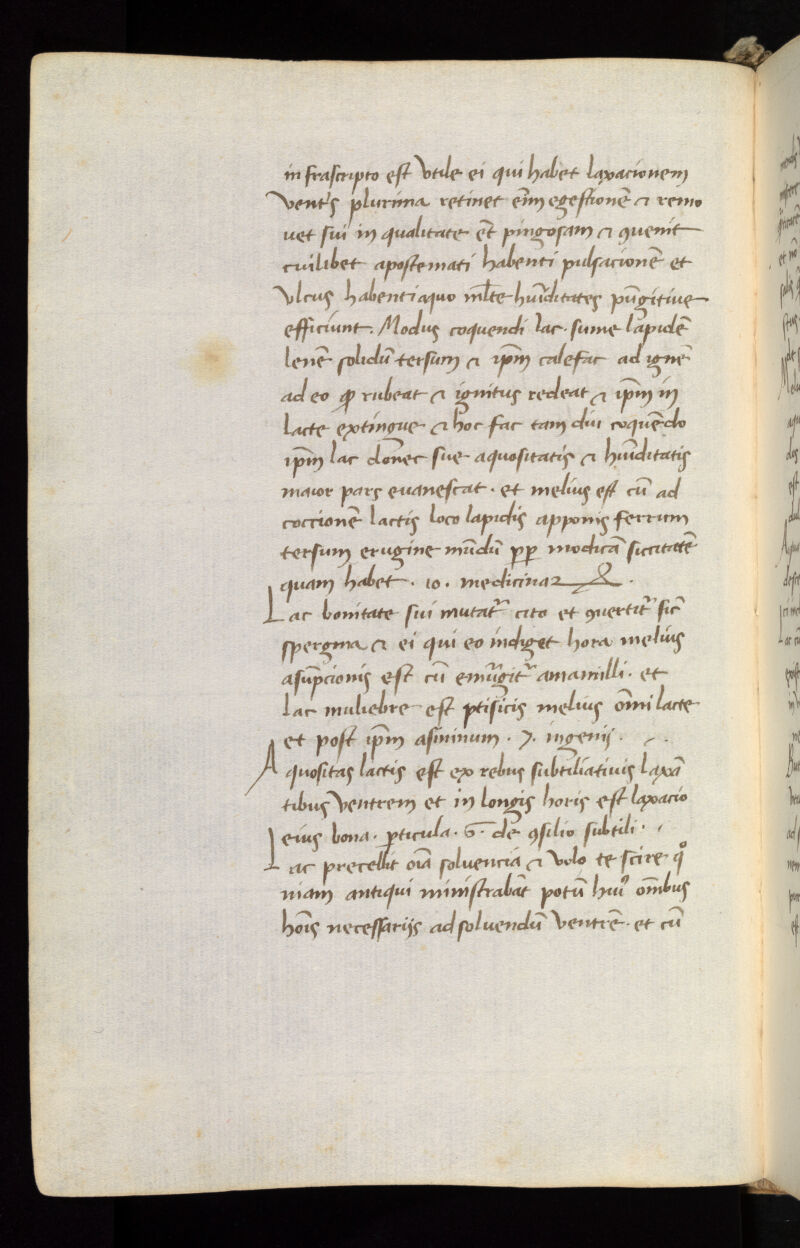 infrascripto est Vtile ei qui habet laxacionem
Ventris plurima retinet eīm egestionē & remo
uet sui in qualitate et pingosam & ꝯuenit
cuilibet apostemati habenti pulsacionē et
Vlcus habenti aquo ml̄te hūiditates pūgitiue
efficiunt. Modus coquendi lac. sume lapidē
lenē solidū tersum & ip̄m calefac ad ignē
ad eo ꝙ rubeat & ignitus redeat & ip̄m in
lacte extingue & hoc fac tam diu coquēdo
ip̄m lac donec sue aquositatis & hūiditatis
maior pars euanescat. et melius est cū ad
coccionē lactis loco lapidis apponis ferrum
tersum erugine mūdū ꝓp̄ modicā siccitatē
quam habet. 10. medicinaꝝ
Lac bonitate sui mutat᷑ cito et ꝯuertit᷑ sic̄
spergma & ei qui eo indiget hora melius
asūpcionis est cū emūgit᷑ amamilli. et
Lac muliebre est ptisicis melius om̄i lacte
et post ip̄m asininum. 7. ingenij.
Aquositas lactis est ex rebus subtiliatiuis laxā
tibus Ventrem et in longis horis est laxacio
eius bona. ꝑticula. 6. de ꝯsilio subtili.
Lac precellit oīa soluencia & Volo te scire qͦ
niam antiqui ministrabāt potū huiꝰ om̄ibus
hoīs necessarijs ad soluendū Ventrē. et cū